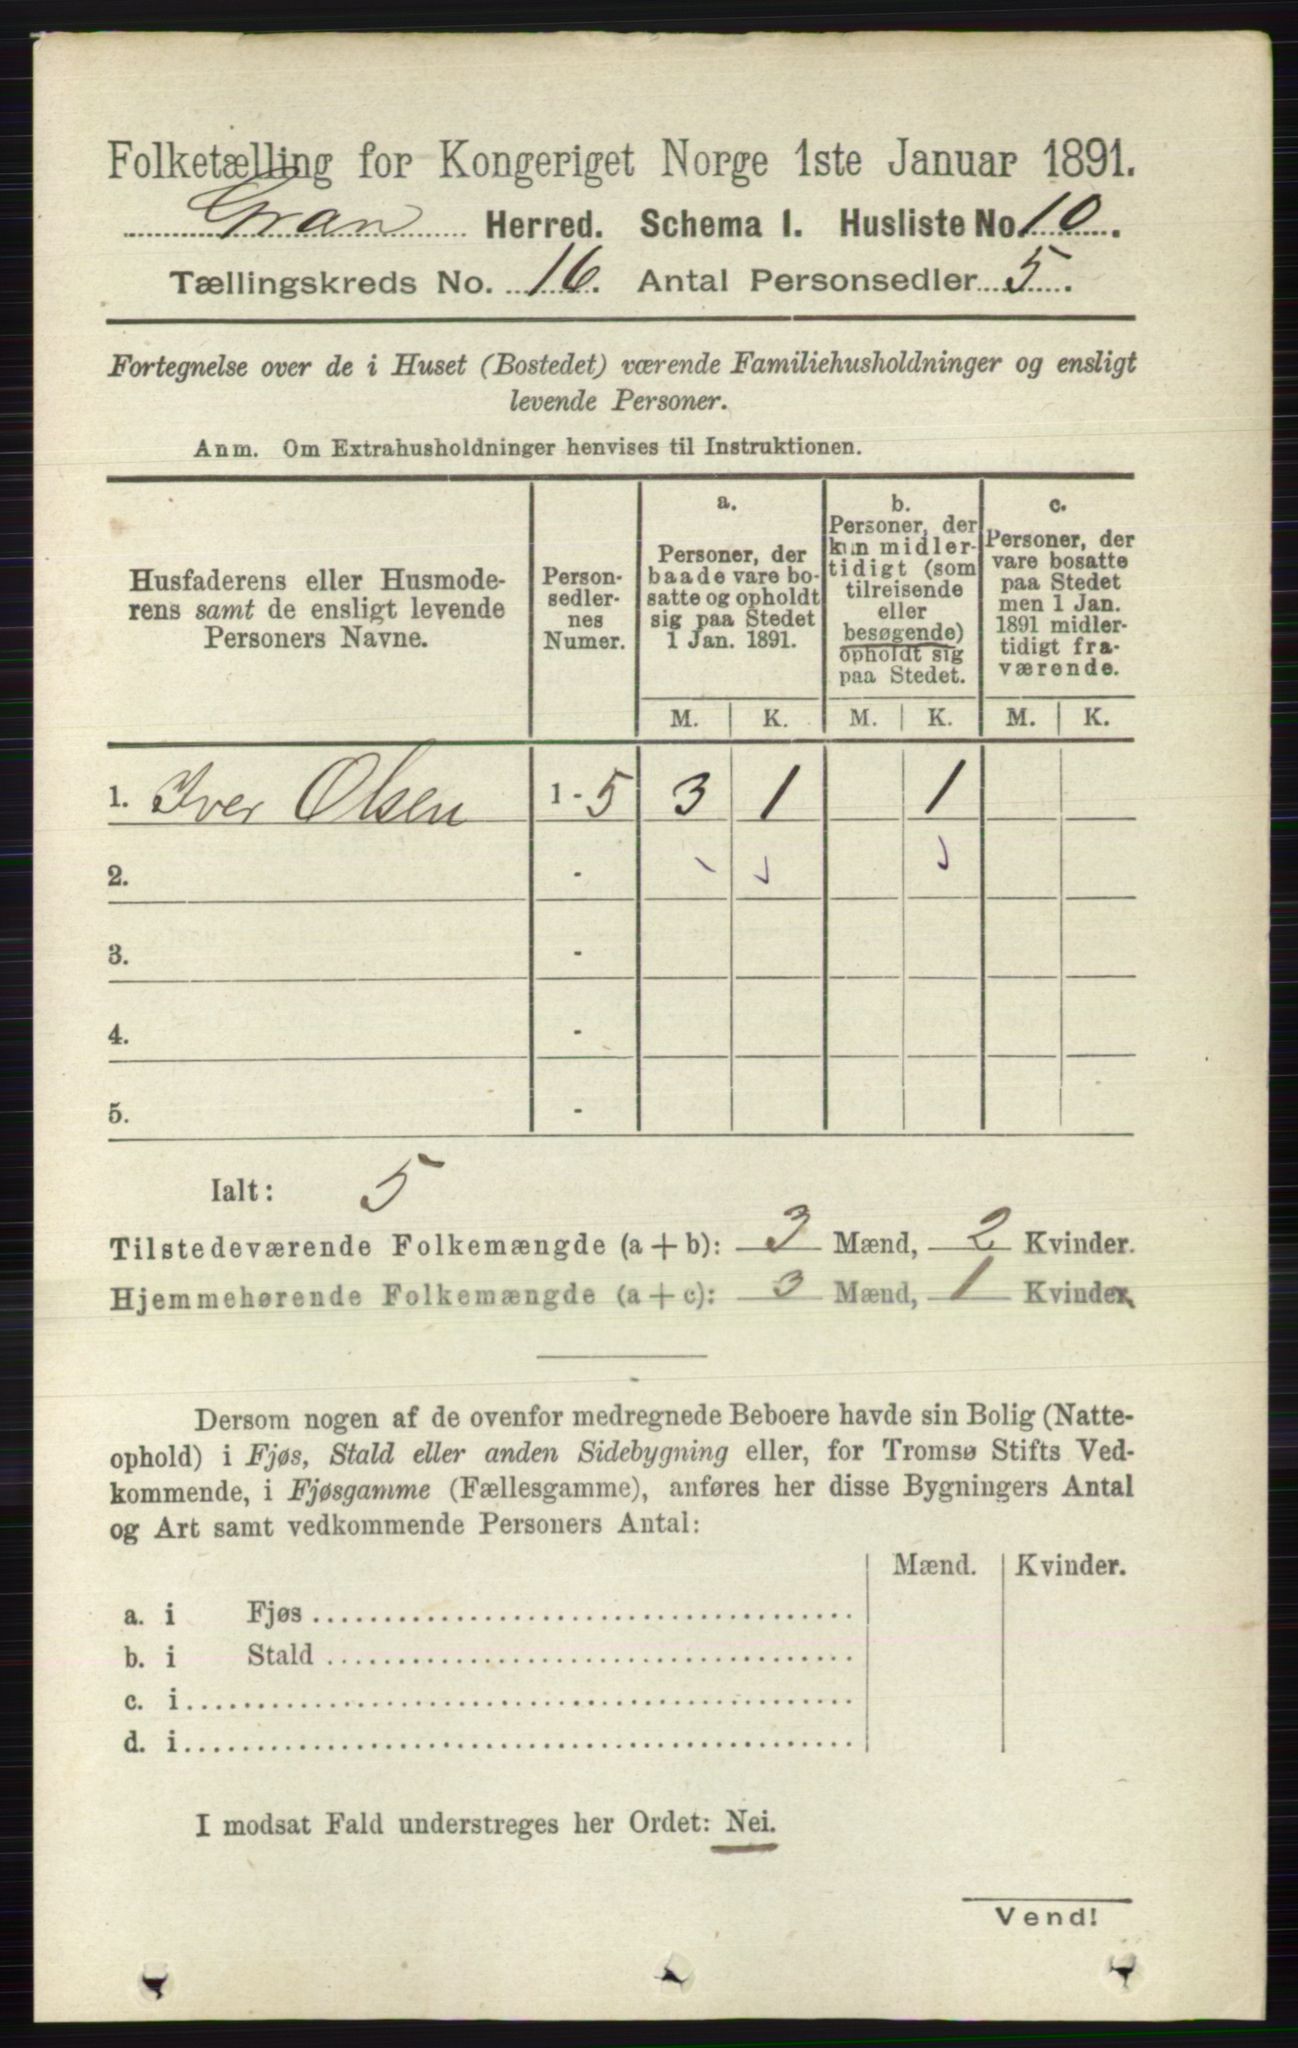 Folketælling for Kongeriget Norge 1ste Januar 1891.
Gran Herred. Schema I. Husliste No. 10.
Tællingskreds No. 16. Antal Personsedler 5.
Fortegnelse over de i Huset (Bostedet) værende Familiehusholdninger og ensligt
levende Personer.
Anm. Om Extrahusholdninger henvises til Instruktionen.
Husfaderens eller Husmode-
rens samt de ensligt levende
Personers Navne.
Person-
sedler-
nes
Numer.
a.
Personer, der
baade vare bo-
satte og opholdt
sig paa Stedet
1 Jan. 1891.
b.
Personer, der
kun midler-
tidigt (som
tilreisende
eller
besøgende)
opholdt sig
paa Stedet.
c.
Personer, der
vare bosatte
paa Stedet
men 1 Jan.
1891 midler-
tidigt fra-
værende.
M. K. M. K. M. K.
1. Iver Olsen 1 - 5 3 1 1
2. -
3. -
4. -
5. -
Ialt: 5
Tilstedeværende Folkemængde (a + b): 3 Mænd, 2 Kvinder.
Hjemmehørende Folkemængde (a + c): 3 Mænd, 1 Kvinder.
Dersom nogen af de ovenfor medregnede Beboere havde sin Bolig (Natte-
ophold) i Fjøs, Stald eller anden Sidebygning eller, for Tromsø Stifts Ved-
kommende, i Fjøsgamme (Fællesgamme), anføres her disse Bygningers Antal
og Art samt vedkommende Personers Antal:
Mænd. Kvinder.
a. i Fjøs
b. i Stald
c. i
d. i
I modsat Fald understreges her Ordet: Nei.
Vend!